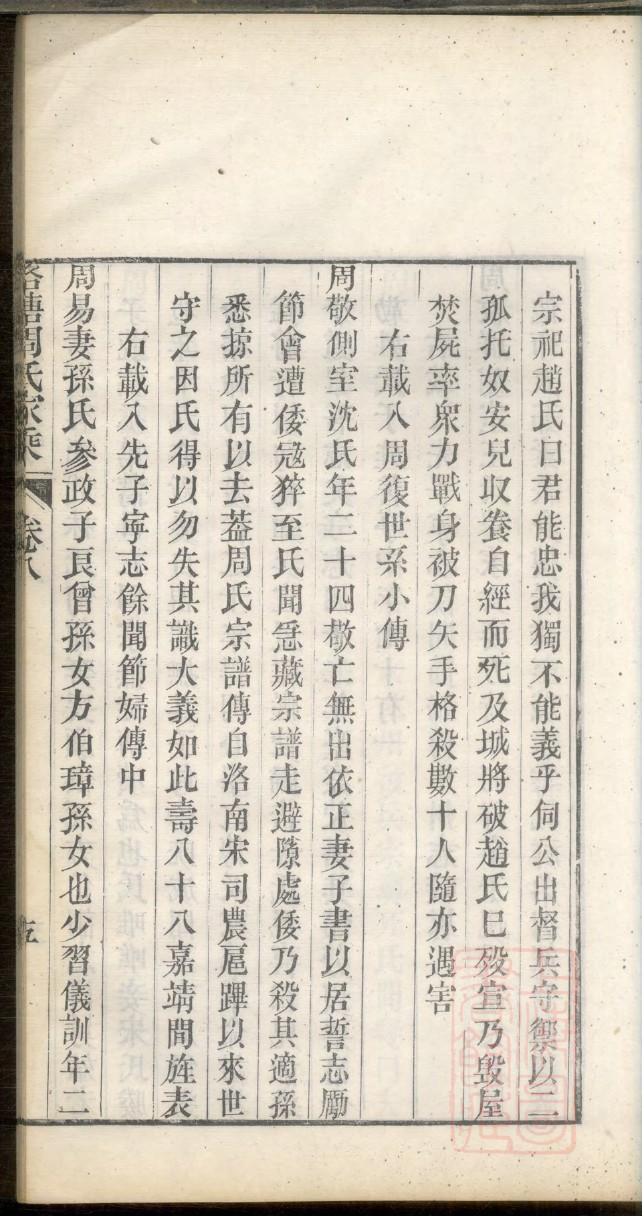 宗祀趙氏曰君能忠我獨不能義乎伺公出督兵守禦以二
孤托奴安兒収養自經而死及城將破趙氏已歿宣乃毀屋
焚屍率衆力戰身被刀矢手格殺數十人隨亦遇害
右載入周復世系小傳
周敬側室沈氏年二十四敬亡無出依正妻子書以居誓志勵
節會遭倭寇猝至氏聞急藏宗譜走避隙處倭乃殺其適孫
悉掠所有以去葢周氏宗譜傳自洛南宋司農扈蹕以來世
守之因氏得以勿失其識大義如此壽八十八嘉靖間旌表
右載入先子寧志餘聞節婦傳中
周易妻孫氏參政子良曾孫女方伯璋孫女也少習儀訓年二
周氏家乘 卷八
五